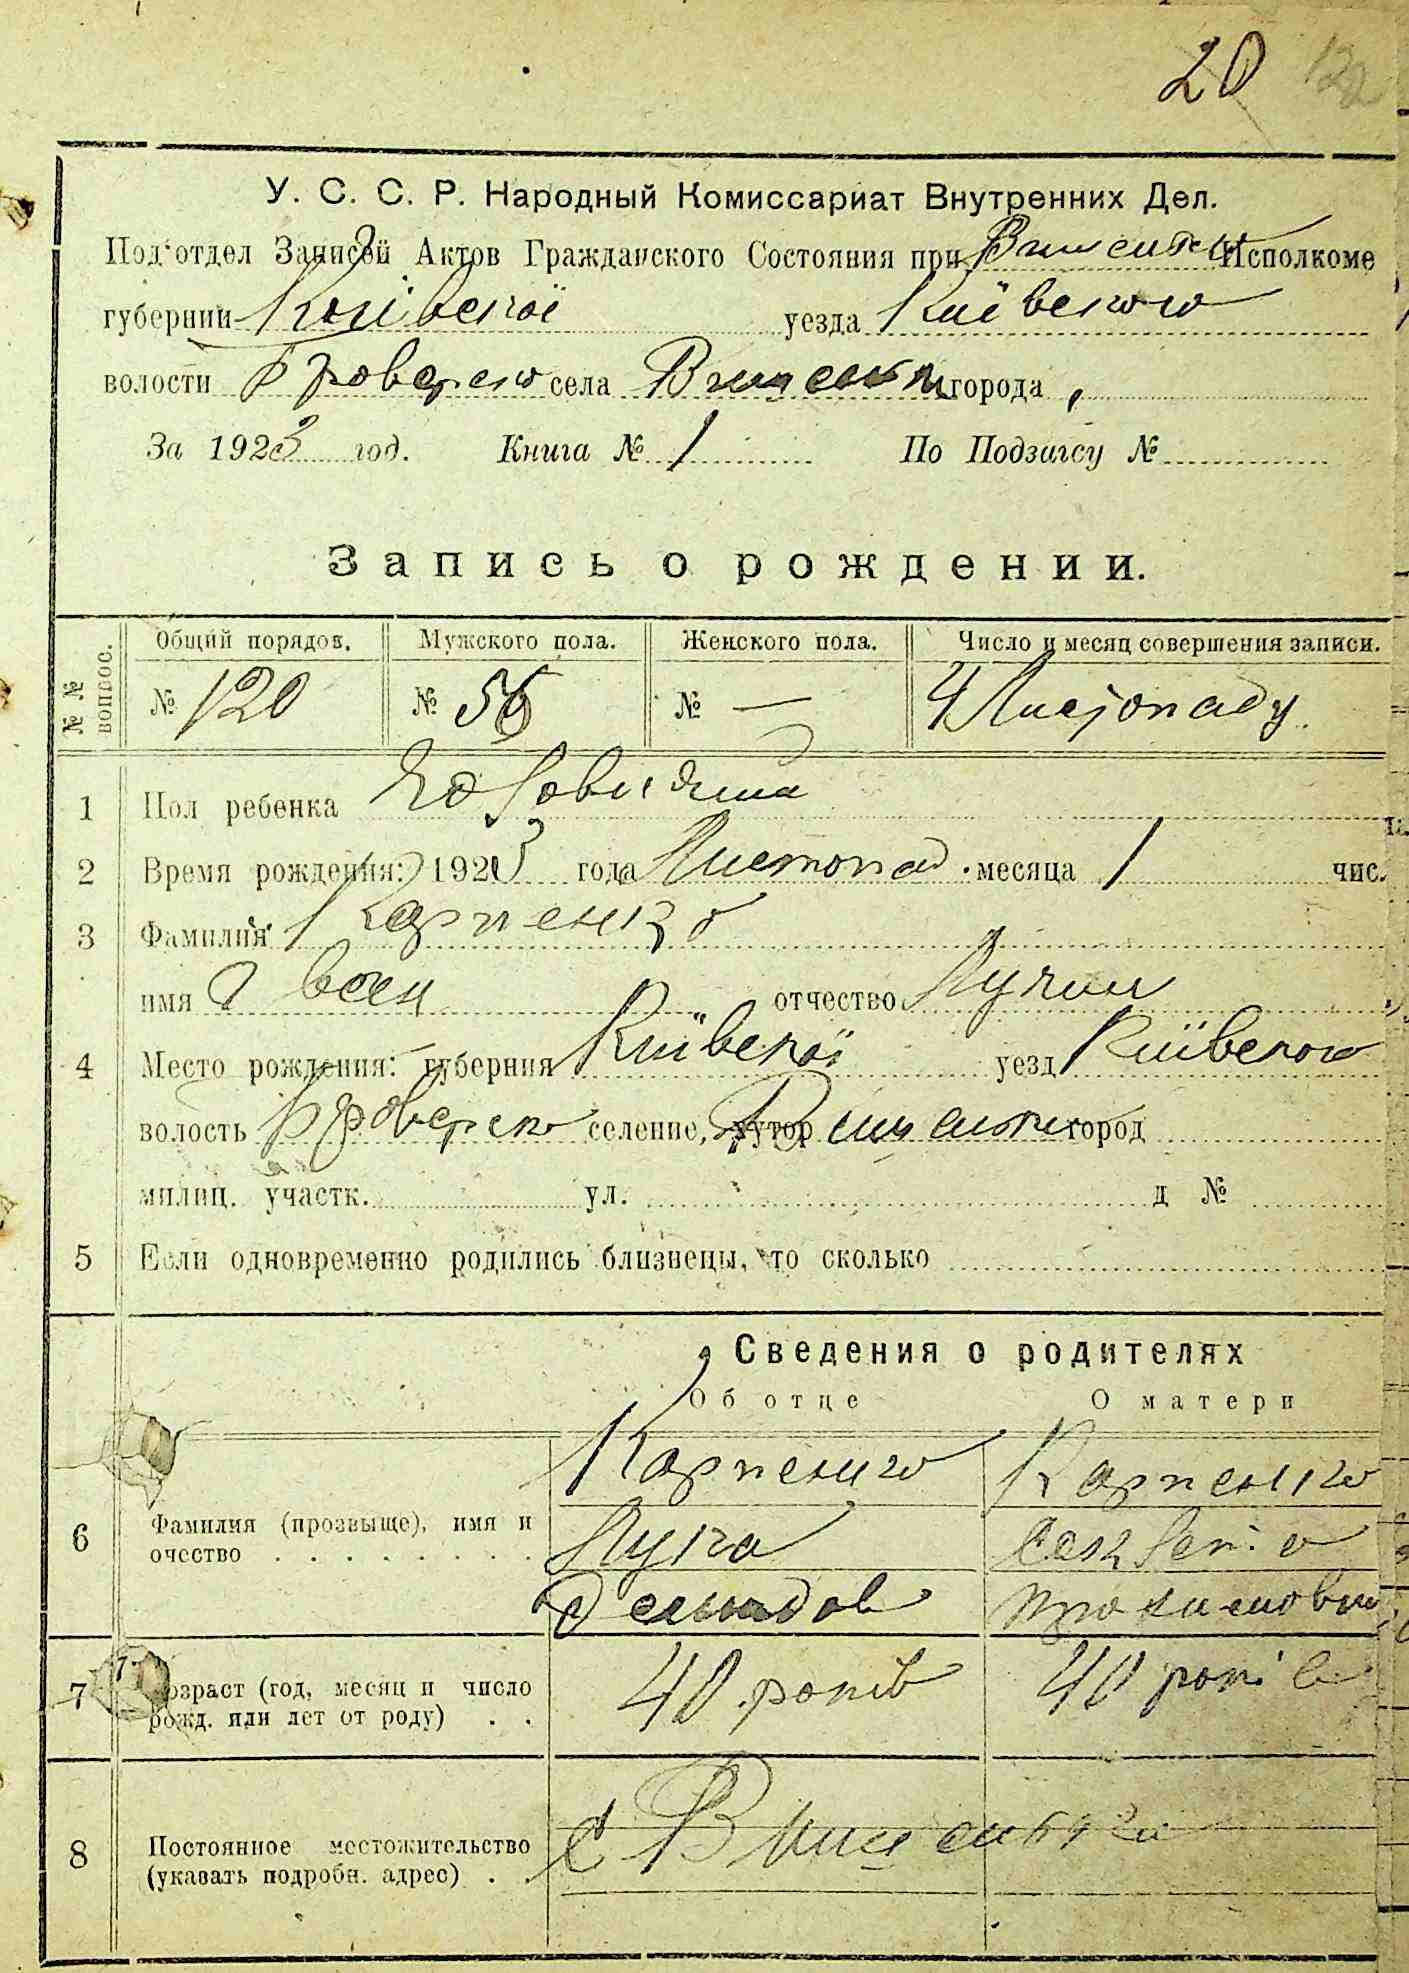 20 120
У. С. С. Р. Народный Комиссариат Внутренних Дел.
Под'отдел Записей Актов Гражданского Состояния при Исполкоме
губернии Київської уезда Київського
волости Броварсько села города
За 1923 год. Книга № 1 По Подзагсу №
Запись о рождении.
№№ вопрос. Общий порядов. Мужского пола. Женского пола. Число и месяц совершения записи.
№ 120 № 56 № — 4 Листопаду
1 Пол ребенка
2 Время рождения: 1923 года Листопад месяца 1 чис.
3 Фамилия Карпенко
имя отчество
4 Место рождения: губерния Київської уезд Київського
волость Броварсько селение, хутор город
милиц. участк. ул. д №
5 Если одновременно родились близнецы, то сколько
Сведения о родителях
Об отце О матери
Карпенко Карпенко
6 Фамилия (прозвыще), имя и Лука
очество
7 Возраст (год, месяц и число 40 років 40 років
рожд. или лет от роду)
8 Постоянное местожительство с
(указать подробн. адрес)